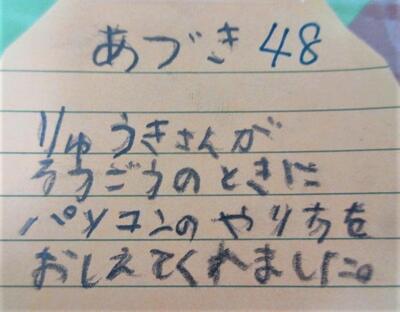 あづき 48
りゅうきさんが
そうごうのときに
パソコンのやりちを
おしえてくれました。